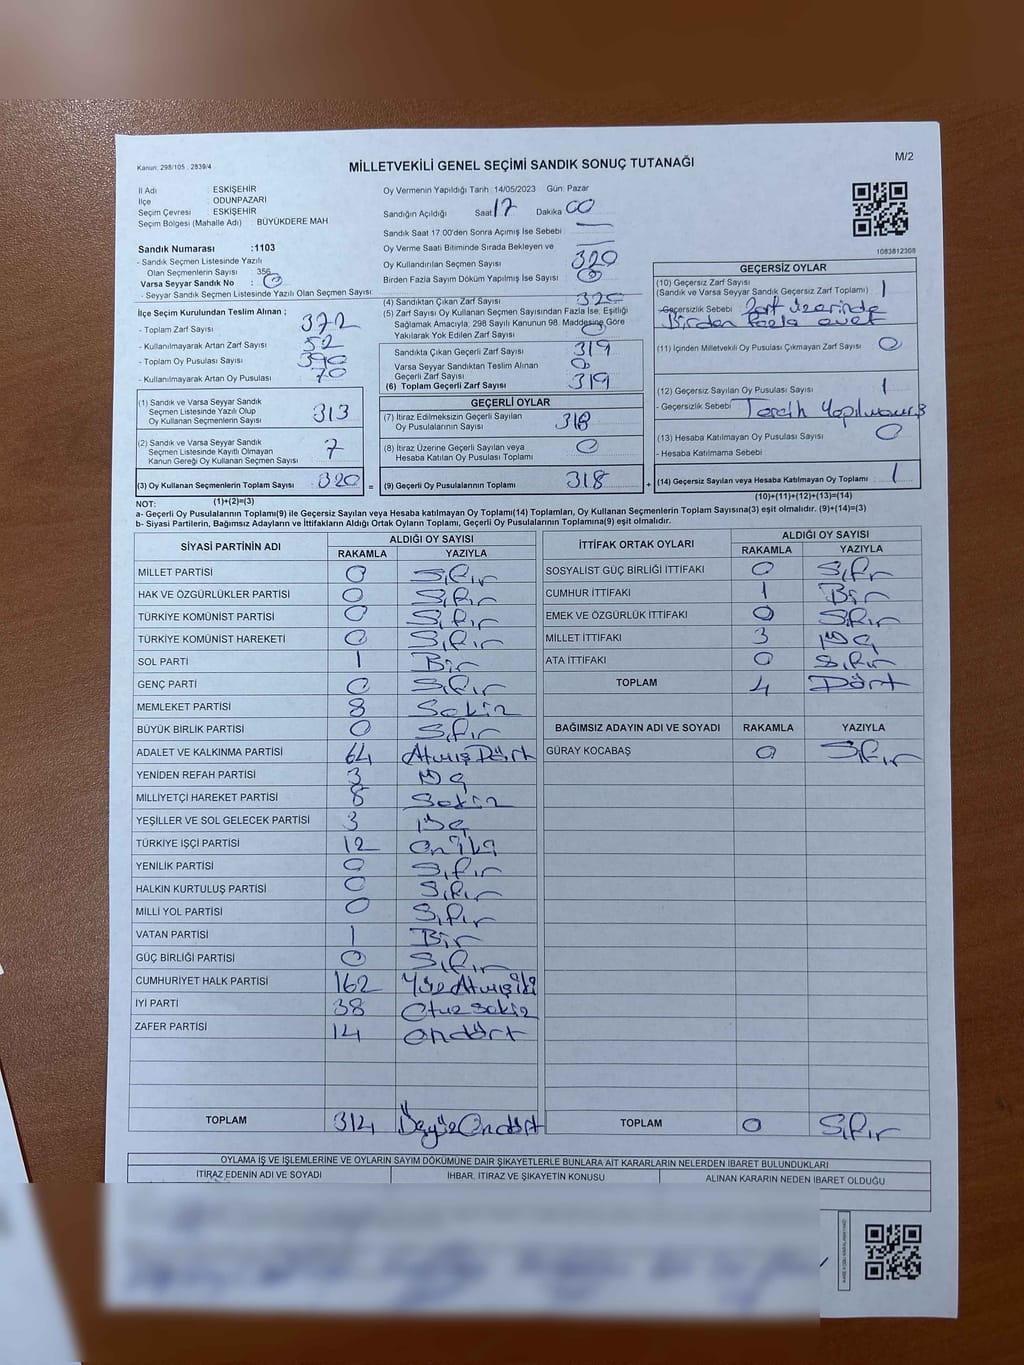 Kanun: 298/105 , 2839/4
MİLLETVEKİLİ GENEL SEÇİMİ SANDIK SONUÇ TUTANAĞI
M/2
İl Adı ESKİŞEHİR
İlçe ODUNPAZARI
Seçim Çevresi ESKİŞEHİR
Seçim Bölgesi (Mahalle Adı) BÜYÜKDERE MAH
Sandık Numarası :1103
- Sandık Seçmen Listesinde Yazılı
Olan Seçmenlerin Sayısı : 356
Varsa Seyyar Sandık No : 0
- Seyyar Sandık Seçmen Listesinde Yazılı Olan Seçmen Sayısı:
Oy Vermenin Yapıldığı Tarih :14/05/2023 Gün: Pazar
Sandığın Açıldığı Saat 17 Dakika 00
Sandık Saat 17:00'den Sonra Açımış İse Sebebi
Oy Verme Saati Bitiminde Sırada Bekleyen ve
Oy Kullandırılan Seçmen Sayısı 320
Birden Fazla Sayım Döküm Yapılmış İse Sayısı 0
1083812308
İlçe Seçim Kurulundan Teslim Alınan ;
- Toplam Zarf Sayısı 372
- Kullanılmayarak Artan Zarf Sayısı 52
- Toplam Oy Pusulası Sayısı 390
- Kullanılmayarak Artan Oy Pusulası 70
(1) Sandık ve Varsa Seyyar Sandık
Seçmen Listesinde Yazılı Olup
Oy Kullanan Seçmenlerin Sayısı 313
(2) Sandık ve Varsa Seyyar Sandık
Seçmen Listesinde Kayıtlı Olmayan
Kanun Gereği Oy Kullanan Seçmen Sayısı 7
(3) Oy Kullanan Seçmenlerin Toplam Sayısı 320 =
(1)+(2)=(3)
(4) Sandıktan Çıkan Zarf Sayısı 320
(5) Zarf Sayısı Oy Kullanan Seçmen Sayısından Fazla İse, Eşitliği
Sağlamak Amacıyla, 298 Sayılı Kanunun 98. Maddesine Göre
Yakılarak Yok Edilen Zarf Sayısı 0
Sandıkta Çıkan Geçerli Zarf Sayısı 319
Varsa Seyyar Sandıktan Teslim Alınan
Geçerli Zarf Sayısı 0
(6) Toplam Geçerli Zarf Sayısı 319
GEÇERLİ OYLAR
(7) İtiraz Edilmeksizin Geçerli Sayılan
Oy Pusulalarının Sayısı 318
(8) İtiraz Üzerine Geçerli Sayılan veya
Hesaba Katılan Oy Pusulası Toplamı 0
(9) Geçerli Oy Pusulalarının Toplamı 318 +
GEÇERSİZ OYLAR
(10) Geçersiz Zarf Sayısı
(Sandık ve Varsa Seyyar Sandık Geçersiz Zarf Toplamı) 1
-Geçersizlik Sebebi Zarf üzerinde
Birden fazla evet
(11) İçinden Milletvekili Oy Pusulası Çıkmayan Zarf Sayısı 0
(12) Geçersiz Sayılan Oy Pusulası Sayısı 1
- Geçersizlik Sebebi Tercih Yapılmamış
(13) Hesaba Katılmayan Oy Pusulası Sayısı 0
- Hesaba Katılmama Sebebi
(14) Geçersiz Sayılan veya Hesaba Katılmayan Oy Toplamı 1
(10)+(11)+(12)+(13)=(14)
NOT:
a- Geçerli Oy Pusulalarının Toplamı(9) ile Geçersiz Sayılan veya Hesaba Katılmayan Oy Toplamı(14) Toplamları, Oy Kullanan Seçmenlerin Toplam Sayısına(3) eşit olmalıdır. (9)+(14)=(3)
b- Siyasi Partilerin, Bağımsız Adayların ve İttifakların Aldığı Ortak Oyların Toplamı, Geçerli Oy Pusulalarının Toplamına(9) eşit olmalıdır.
SİYASİ PARTİNİN ADI ALDIĞI OY SAYISI
RAKAMLA YAZIYLA
MİLLET PARTİSİ 0 Sıfır
HAK VE ÖZGÜRLÜKLER PARTİSİ 0 Sıfır
TÜRKİYE KOMÜNİST PARTİSİ 0 Sıfır
TÜRKİYE KOMÜNİST HAREKETİ 0 Sıfır
SOL PARTİ 1 Bir
GENÇ PARTİ 0 Sıfır
MEMLEKET PARTİSİ 8 Sekiz
BÜYÜK BİRLİK PARTİSİ 0 Sıfır
ADALET VE KALKINMA PARTİSİ 64 AtmışDört
YENİDEN REFAH PARTİSİ 3 Üç
MİLLİYETÇİ HAREKET PARTİSİ 8 Sekiz
YEŞİLLER VE SOL GELECEK PARTİSİ 3 Üç
TÜRKİYE İŞÇİ PARTİSİ 12 Oniki
YENİLİK PARTİSİ 0 Sıfır
HALKIN KURTULUŞ PARTİSİ 0 Sıfır
MİLLİ YOL PARTİSİ 0 Sıfır
VATAN PARTİSİ 1 Bir
GÜÇ BİRLİĞİ PARTİSİ 0 Sıfır
CUMHURİYET HALK PARTİSİ 162 YüzAtmışiki
İYİ PARTİ 38 Otuzsekiz
ZAFER PARTİSİ 14 Ondört
TOPLAM 314 ÜçyüzOndört
İTTİFAK ORTAK OYLARI ALDIĞI OY SAYISI
RAKAMLA YAZIYLA
SOSYALİST GÜÇ BİRLİĞİ İTTİFAKI 0 Sıfır
CUMHUR İTTİFAKI 1 Bir
EMEK VE ÖZGÜRLÜK İTTİFAKI 0 Sıfır
MİLLET İTTİFAKI 3 Üç
ATA İTTİFAKI 0 Sıfır
TOPLAM 4 Dört
BAĞIMSIZ ADAYIN ADI VE SOYADI RAKAMLA YAZIYLA
GÜRAY KOCABAŞ 0 Sıfır
TOPLAM 0 Sıfır
OYLAMA İŞ VE İŞLEMLERİNE VE OYLARIN SAYIM DÖKÜMÜNE DAİR ŞİKAYETLERLE BUNLARA AİT KARARLARIN NELERDEN İBARET BULUNDUKLARI
İTİRAZ EDENİN ADI VE SOYADI İHBAR, İTİRAZ VE ŞİKAYETİN KONUSU ALINAN KARARIN NEDEN İBARET OLDUĞU